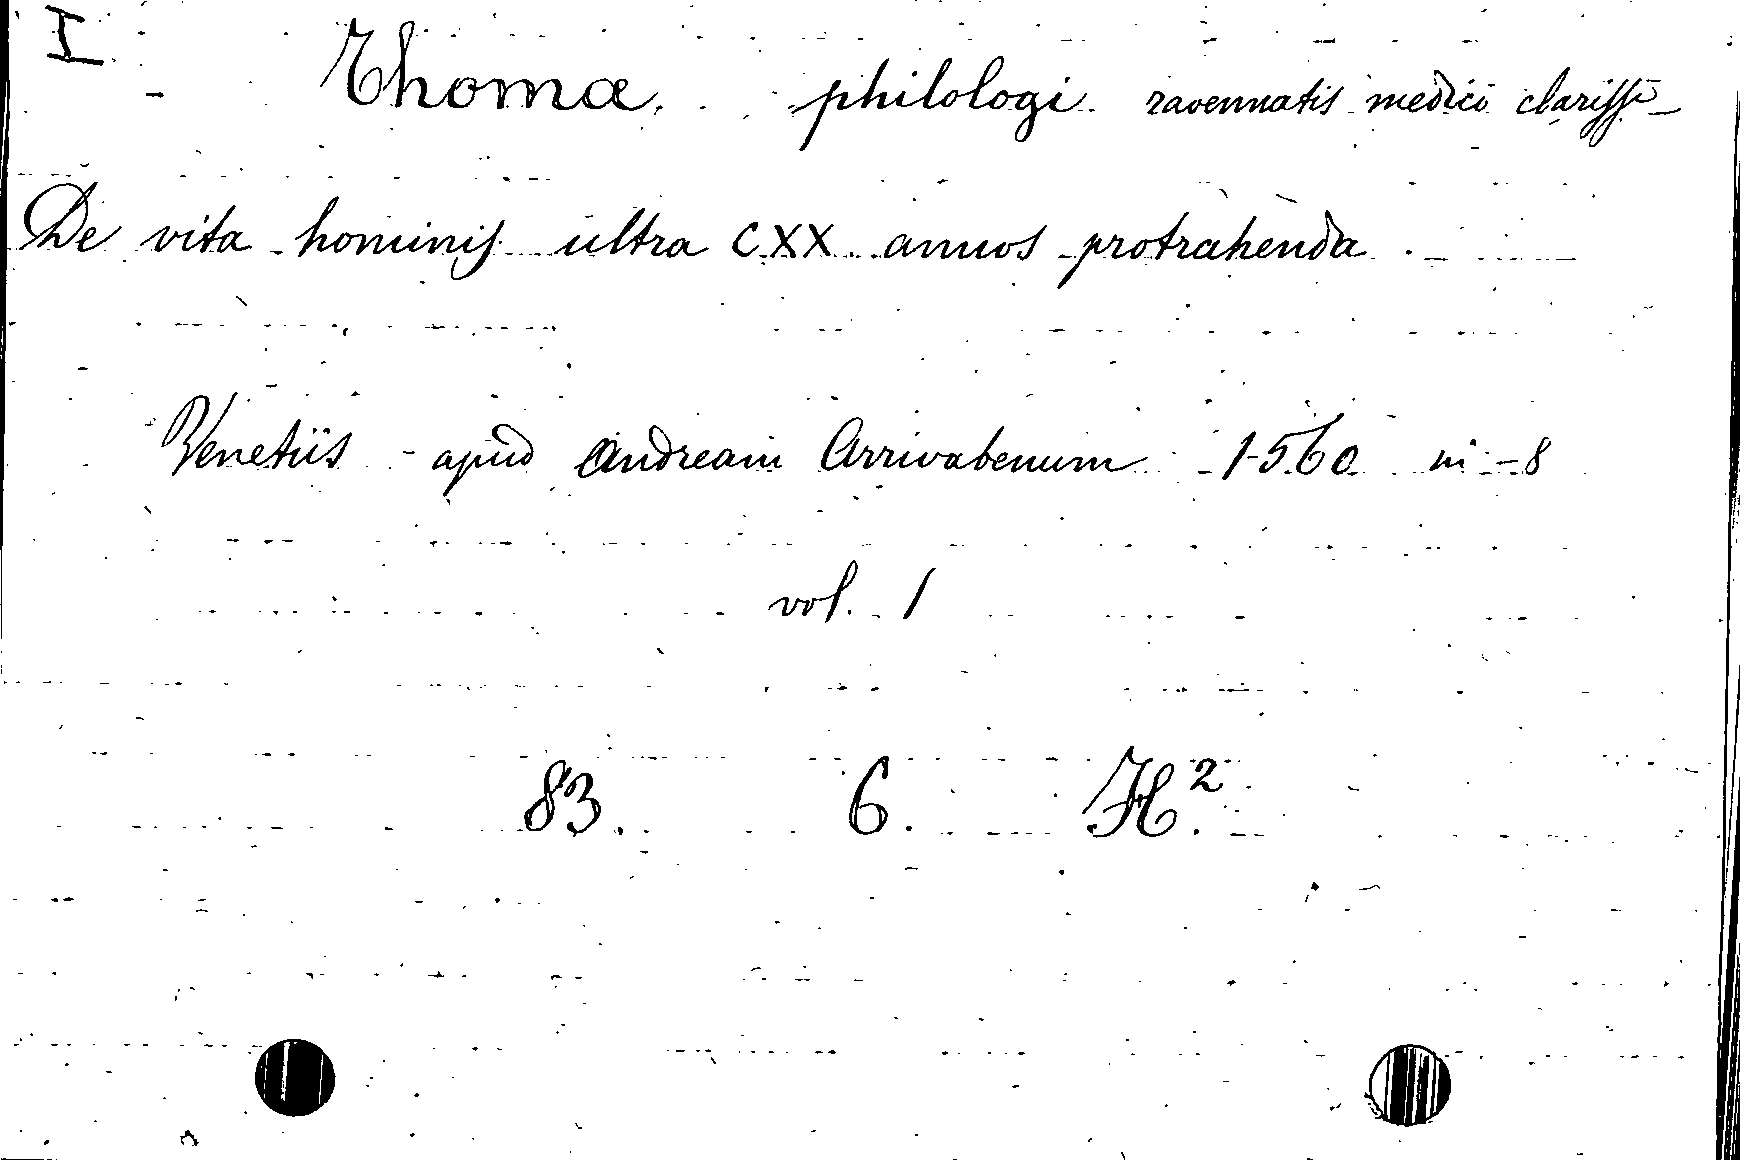 I
Thomæ philologi ravennatis medici clariss.
De vita hominis ultra CXX annos protrahenda.
Venetiis - apud Andream Arrivabenum 1560 in-8
vol. 1
83. 6. H².